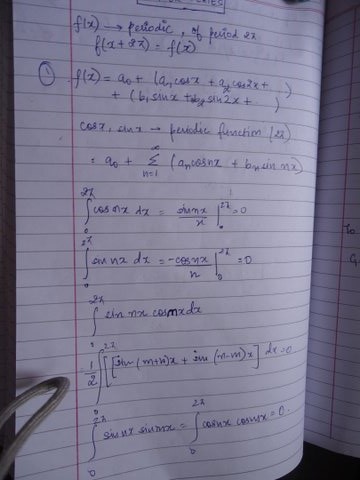 f(x) → periodic, of period 2π
f(x+2π) = f(x)
① f(x) = a₀ + (a₁ cosx + a₂ cos2x + )
+ (b₁ sinx + b₂ sin2x + )
cosx, sinx → periodic function (2π)
= a₀ + ∑_{n=1}^{∞} (aₙ cosnx + bₙ sin nx)
∫₀^{2π} cos nx dx = sin nx / n |₀^{2π} = 0
∫₀^{2π} sin nx dx = -cos nx / n |₀^{2π} = 0
∫₀^{2π} sin nx cosmx dx
1/2 ∫₀^{2π} [sin (m+n)x + sin (n-m)x] dx = 0
∫₀^{2π} sin nx sin mx = ∫₀^{2π} cosnx cosmx = 0